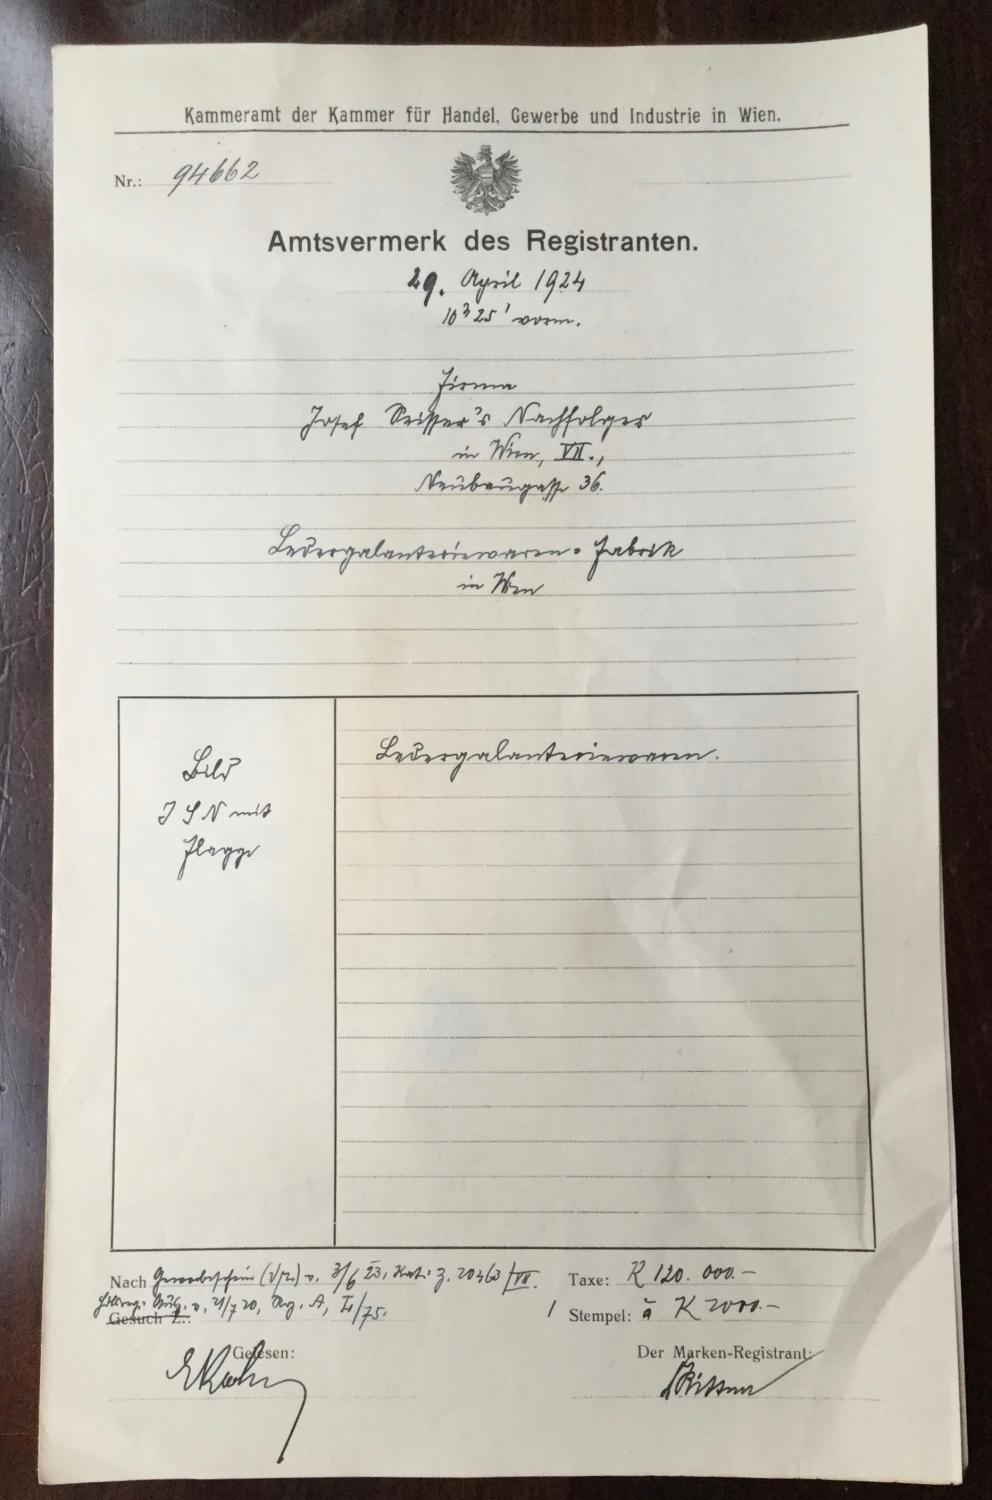 Kammeramt der Kammer für Handel, Gewerbe und Industrie in Wien.
Nr.: 94662
Amtsvermerk des Registranten.
29. April 1924
10h 25' vorm.
Firma
Josef Seisser's Nachfolger
in Wien, VII.,
Neubaugasse 36.
Ledergalanteriewaren-Fabrik
in Wien
Bild
J S N mit
Flagge
Ledergalanteriewaren.
Nach Gewerbeschein v. 3/6 23, Z. 20463/VII.
v. 21/7 20, Rg. A, 75.
Gesuch Z.:
Taxe: K 120.000.-
1 Stempel: à K 2000.-
Gelesen:
Der Marken-Registrant: